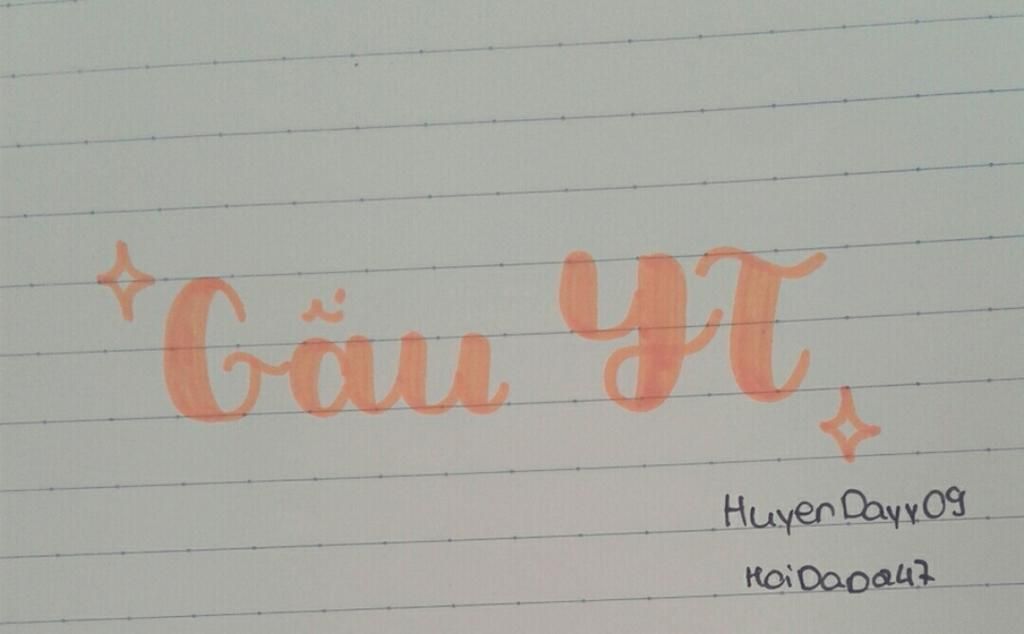 Gấu YT
HuyenDayy09
HoiDapa47